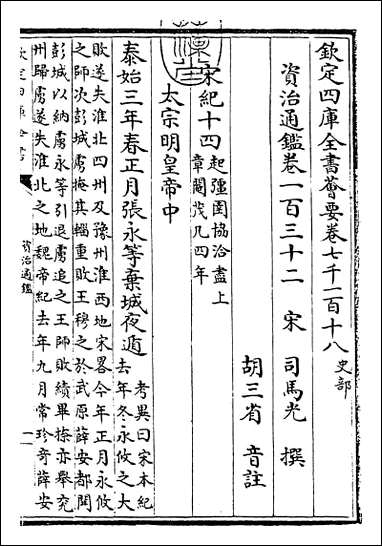 欽定四庫全書薈要卷七千一百十八 史部
資治通鑑卷一百三十二 宋 司馬光 撰
胡三省 音註
宋紀十四 起彊圉協洽盡上
章閹茂凡四年
太宗明皇帝中
泰始三年春正月張永等棄城夜遁 考異曰宋本紀
去年冬永攸之大
敗遂失淮北四州及豫州淮西地宋畧今年正月永攸
之師次彭城虜掩其輜重敗王穆之於武原薛安都開
彭城以納虜永等引退虜追之王師敗績畢捺亦舉兖
州歸虜遂失淮北之地魏帝紀去年九月常珍奇薛安
資治通鑑
一